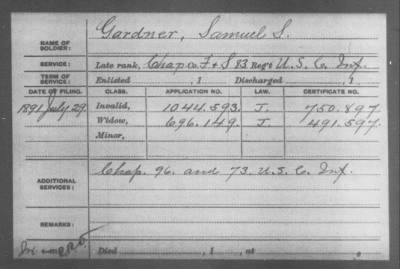 NAME OF SOLDIER: Gardner, Samuel S.
SERVICE: Late rank, Chap Co. F & S 83 Reg't U. S. C. Inf.
TERM OF SERVICE: Enlisted , 1 Discharged , 1
DATE OF FILING. CLASS. APPLICATION NO. LAW. CERTIFICATE NO.
1891 July 29 Invalid, 1044.593. J. 750.897
Widow, 696.149. J. 491.597.
Minor,
ADDITIONAL SERVICES: Chap. 96. and 73. U. S. C. Inf.
REMARKS:
Died , 1 , at